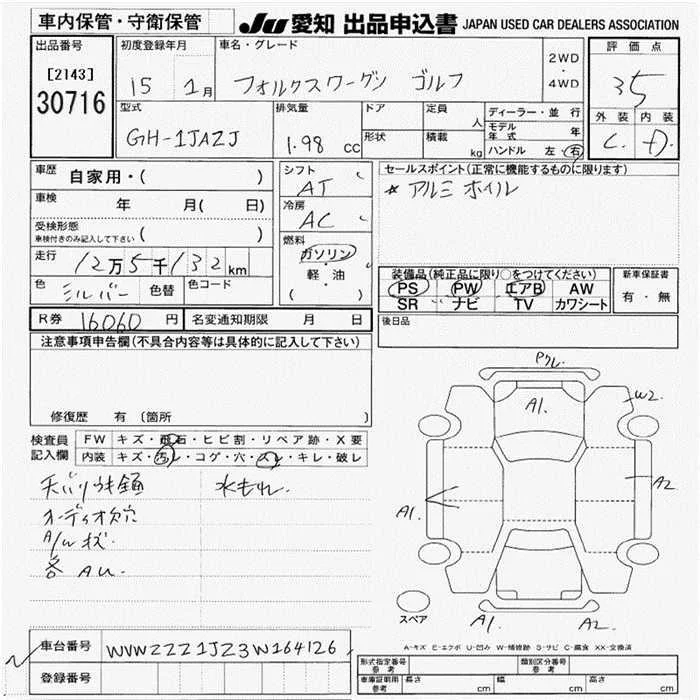 車内保管・守衛保管
JU 愛知 出品申込書 JAPAN USED CAR DEALERS ASSOCIATION
出品番号
[2143]
30716
初度登録年月
15 1月
車名・グレード
フォルクスワーゲン ゴルフ
2WD
・
4WD
評価点
35
外装 内装
C. D.
型式
GH-1JAZJ
排気量
1.98 cc
ドア
形状
定員 人
積載 kg
ディーラー・並行
モデル年式 年
ハンドル 左・右
車歴 自家用・( )
車検 年 月( 日)
受検形態
車検付きのみ記入して下さい ( )
走行 12万5千132km
色 シルバー 色替 色コード
シフト AT
冷房 AC
燃料
ガソリン
・
軽・油
( )
セールスポイント(正常に機能するものに限ります)
* アルミホイル
装備品(純正品に限り○をつけてください)
PS PW エアB AW
SR ナビ TV カワシート
新車保証書
有・無
後日品
R券 16060 円 名変通知期限 月 日
注意事項申告欄(不具合内容等は具体的に記入して下さい)
修復歴 有 〔箇所 〕
検査員
記入欄
FW キズ・飛石・ヒビ割・リペア跡・X要
内装 キズ・汚レ・コゲ・穴・スレ・キレ・破レ
水もれ.
オーディオ欠穴
A/W キズ.
各 AU.
Pクレ.
A1.
W2
A2
A1.
A1.
A2.
スペア
A-キズ E-エクボ U-凹み W-補修跡 S-サビ C-腐食 XX-交換済
車台番号 WVWZZZ1JZ3W164126
登録番号
形式指定番号 参考
類別区分番号 参考
車庫証明用 参考 長さ cm 幅 cm 高さ cm